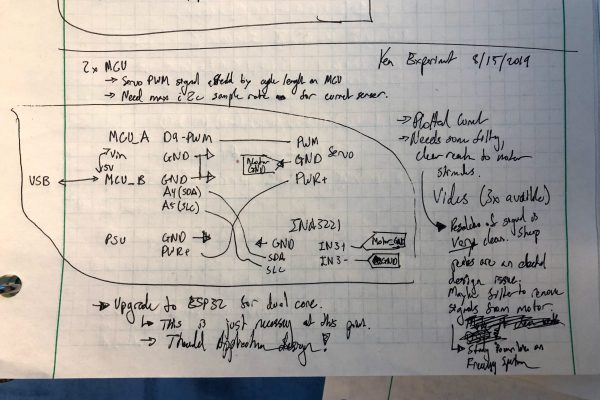 2x MCU
→ Servo PWM signal effected by cycle length on MCU
→ Need max i2c sample rate for current sensor.
Ken Experiment 8/15/2019
MCU_A D9-PWM PWM
Vin GND Motor GND GND Servo
5V
USB MCU_B GND PWR+
A4 (SDA)
A5 (SLC)
INA3221
PSU GND GND IN3+ Motor_GND
PWR+ SDA IN3- GND
SLC
→ Plotted Current
→ Needs some filtering,
clear reaction to motor
stimulus.
Videos (3x available)
Resolution of signal is
Very clean. Sharp
peaks are an electrical
design issue.
Maybe filter to remove
signals from motor.
→ Upgrade to ESP32 for dual core.
↳ This is just necessary at this point.
→ Should Application Design!